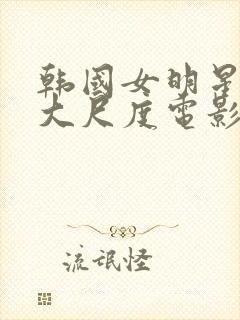 韩国女明星
大尺度电影
流氓怪